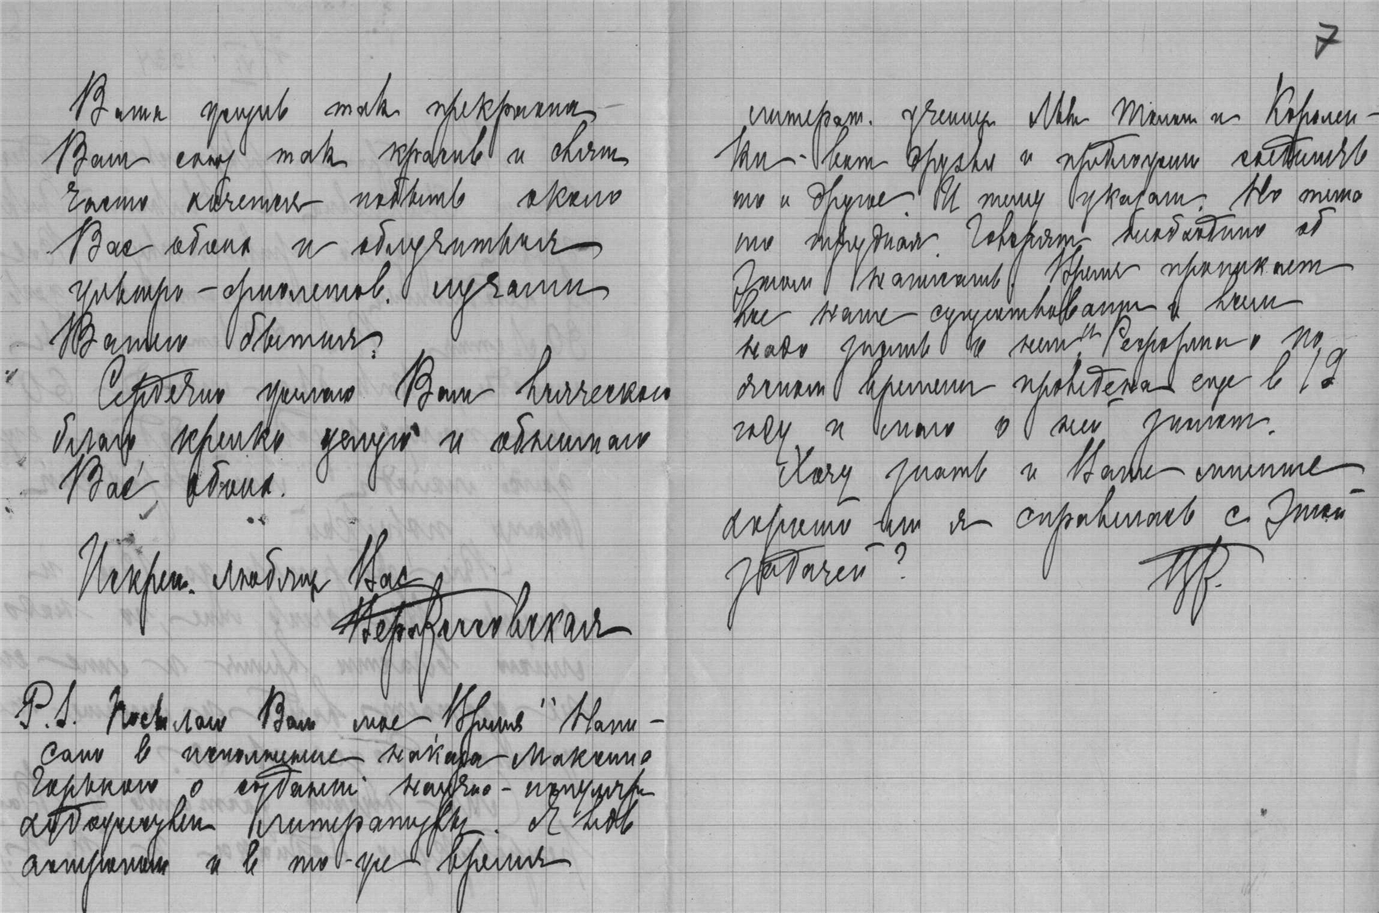 Ваша жизнь так прекрасна
Ваш союз так красив и свят
часто хочется побыть около
Вас обоих и облучиться
ультра-фиолетов. лучами
Вашего бытия.
Сердечно желаю Вам всяческого
блага крепко целую и обнимаю
Вас обоих.
Искрен. любящая Вас
Вера
P.S. Посылаю Вам мое "Время" Напи-
сано в исполнение наказа Максима
Горького о создании научно-популярн.
художествен литературы. Я ведь
астроном и в то-же время
7
литерат. ученица Льва Толст и Королен-
ки - вот друзья и предложили соединить
то и другое. И тему указали. Но тема
то трудная. Говорят необходимо об
этом написать. Время проникает
все наше существование и всем
надо знать о нем. Реформа о по
времени проведена еще в 19
году и мало о ней знают.
Хочу знать и Ваше мнение
хорошо ли я справилась с этой
задачей?